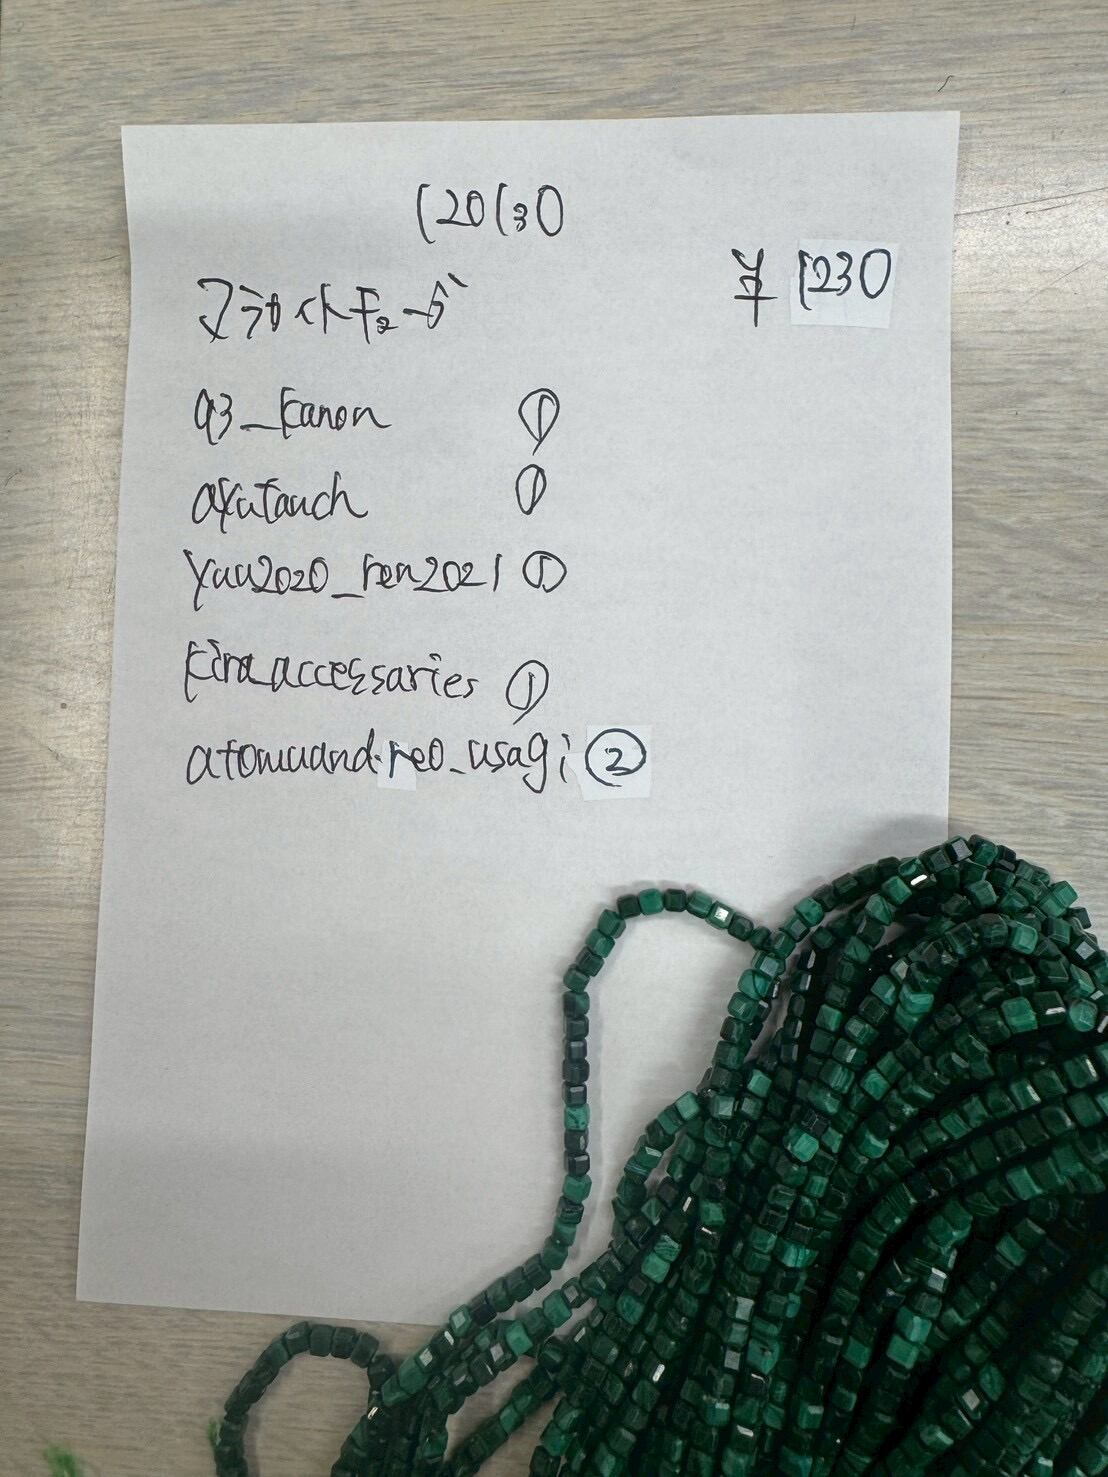 120130
¥ 1230
マラカイトキューブ
93_kanon ①
ayutauch ①
yuu2020_ren2021 ①
kira_accessaries ①
atomuand.reo_usagi ②